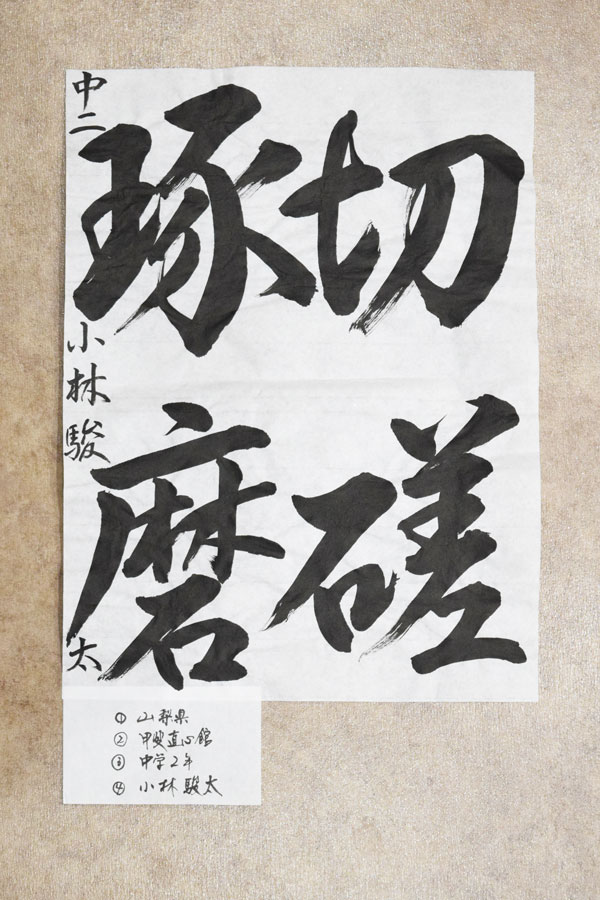 切磋
琢磨
中二 小林駿太
① 山梨県
② 甲斐直心館
③ 中学2年
④ 小林駿太